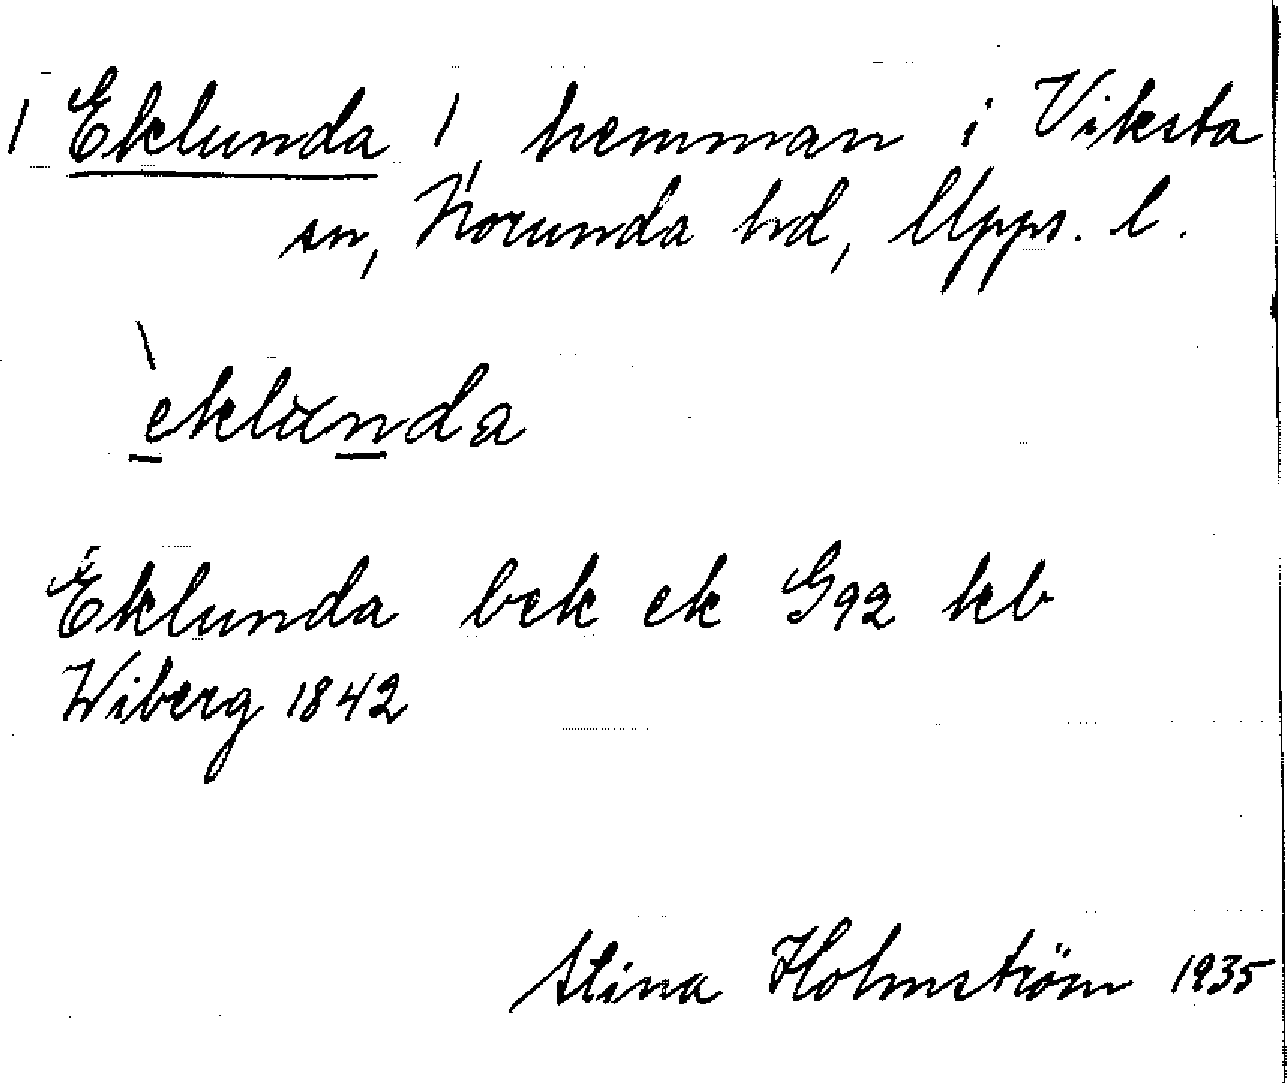 / Eklunda /, hemman i Viksta
sn, Norunda hd, Upps. l.
èklunda
Eklunda bek ek G92 kb
Wiberg 1842
Stina Holmström 1935